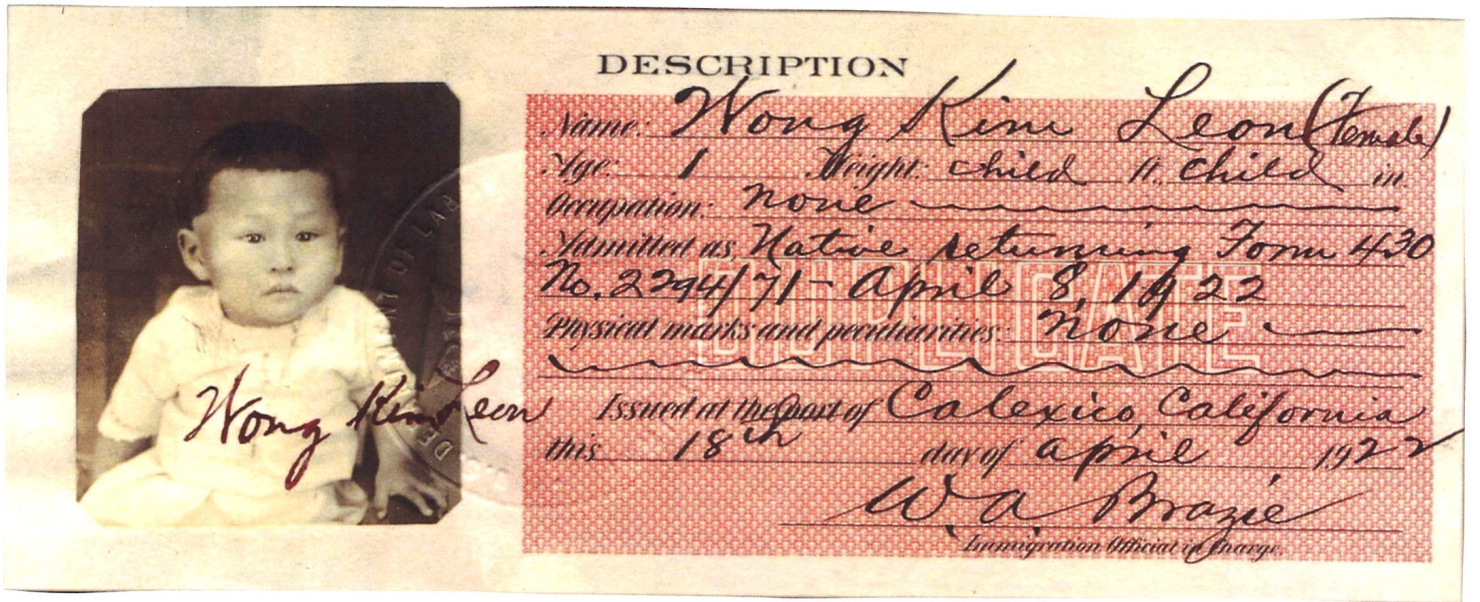 DESCRIPTION
Name: Wong Kim Leon (Female)
Age: 1 Height: child ft., child in.
Occupation: none
Admitted as Native returning Form 430
No. 2294/71 - April 8, 1922
DUPLICATE
Physical marks and peculiarities: none
Issued at the port of Calexico, California
this 18th day of April 1922
W. A. Brazie
Immigration Official in Charge.
Wong Kim Leon
DE NT OF LAB